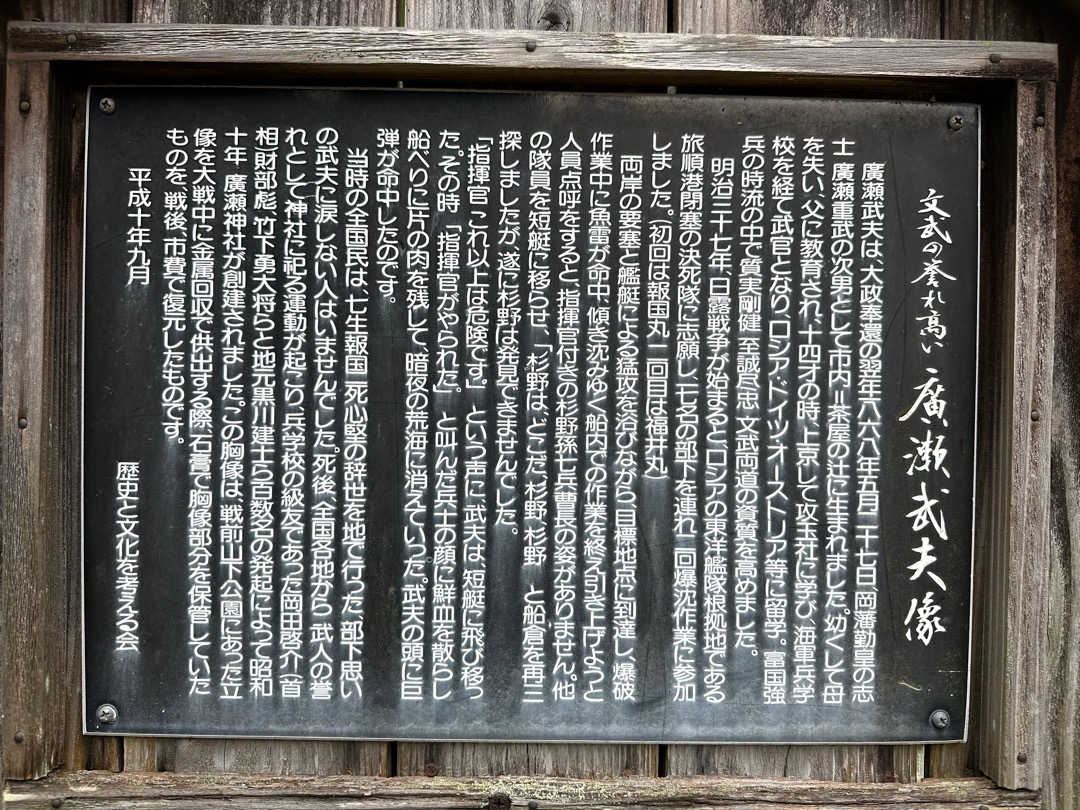 文武の誉れ高い 廣瀬武夫像
廣瀬武夫は、大政奉還の翌年一八六八年五月二十七日、岡藩勤皇の志
士 廣瀬重武の次男として市内＝茶屋の辻に生まれました。幼くして母
を失い、父に教育され、十四才の時、上京して攻玉社に学び、海軍兵学
校を経て武官となり、ロシア・ドイツ・オーストリア等に留学。富国強
兵の時流の中で質実剛健 至誠尽忠 文武両道の資質を高めました。
明治三十七年、日露戦争が始まると、ロシアの東洋艦隊根拠地である
旅順港閉塞の決死隊に志願し、十七名の部下を連れ二回爆沈作業に参加
しました。（初回は報国丸 二回目は福井丸）
両岸の要塞と艦艇による猛攻を浴びながら、目標地点に到達し、爆破
作業中に魚雷が命中、傾き沈みゆく船内での作業を終え引き上げようと
人員点呼をすると、指揮官付きの杉野孫七兵曹長の姿がありません。他
の隊員を短艇に移らせ、「杉野は、どこだ、杉野、杉野」と船倉を再三
探しましたが、遂に杉野は発見できませんでした。
「指揮官 これ以上は危険です。」という声に、武夫は、短艇に飛び移っ
た。その時「指揮官がやられた。」と叫んだ兵士の顔に鮮血を散らし
船べりに一片の肉を残して、暗夜の荒海に消えていった。武夫の頭に巨
弾が命中したのです。
当時の全国民は、七生報国 一死心堅の辞世を地で行った、部下思い
の武夫に涙しない人はいませんでした。死後、全国各地から 武人の誉
れとして神社に祀る運動が起こり、兵学校の級友であった岡田啓介（首
相）財部彪、竹下勇大将らと地元黒川建士ら百数名の発起によって昭和
十年 廣瀬神社が創建されました。この胸像は、戦前山下公園にあった立
像を大戦中に金属回収で供出する際、石膏で胸像部分を保管していた
ものを、戦後、市費で復元したものです。
平成十年九月
歴史と文化を考える会